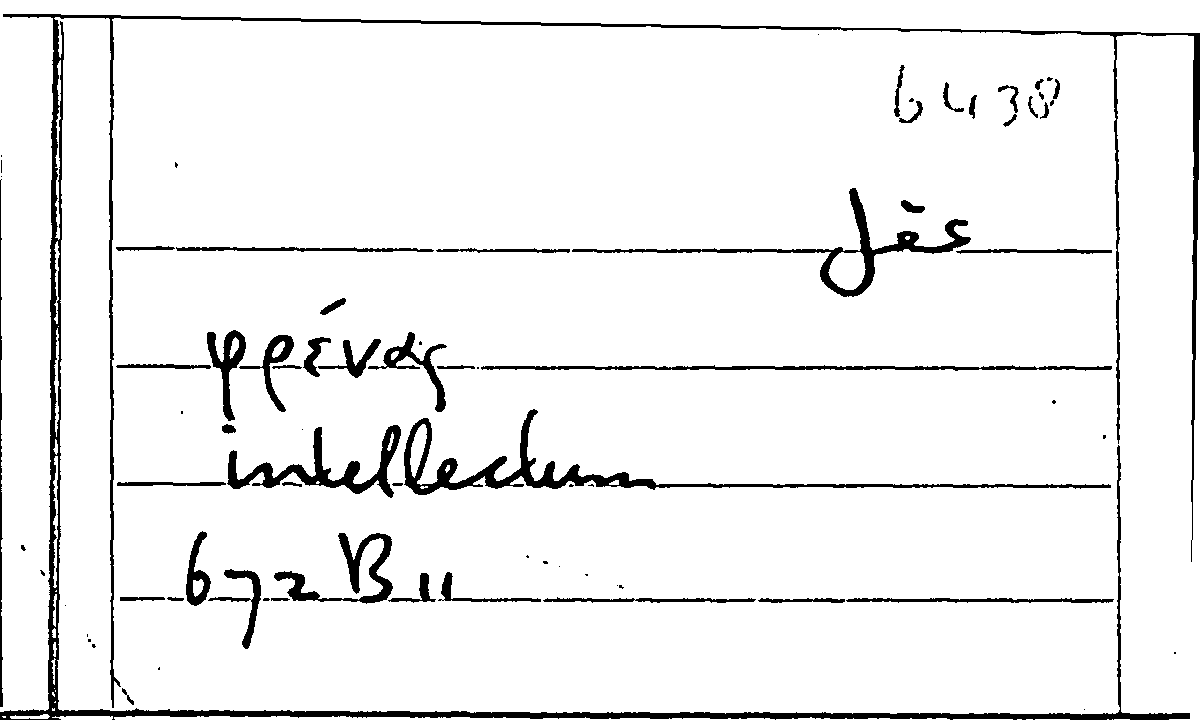 6438
Jės
φρένας
intellectum
672 B 11